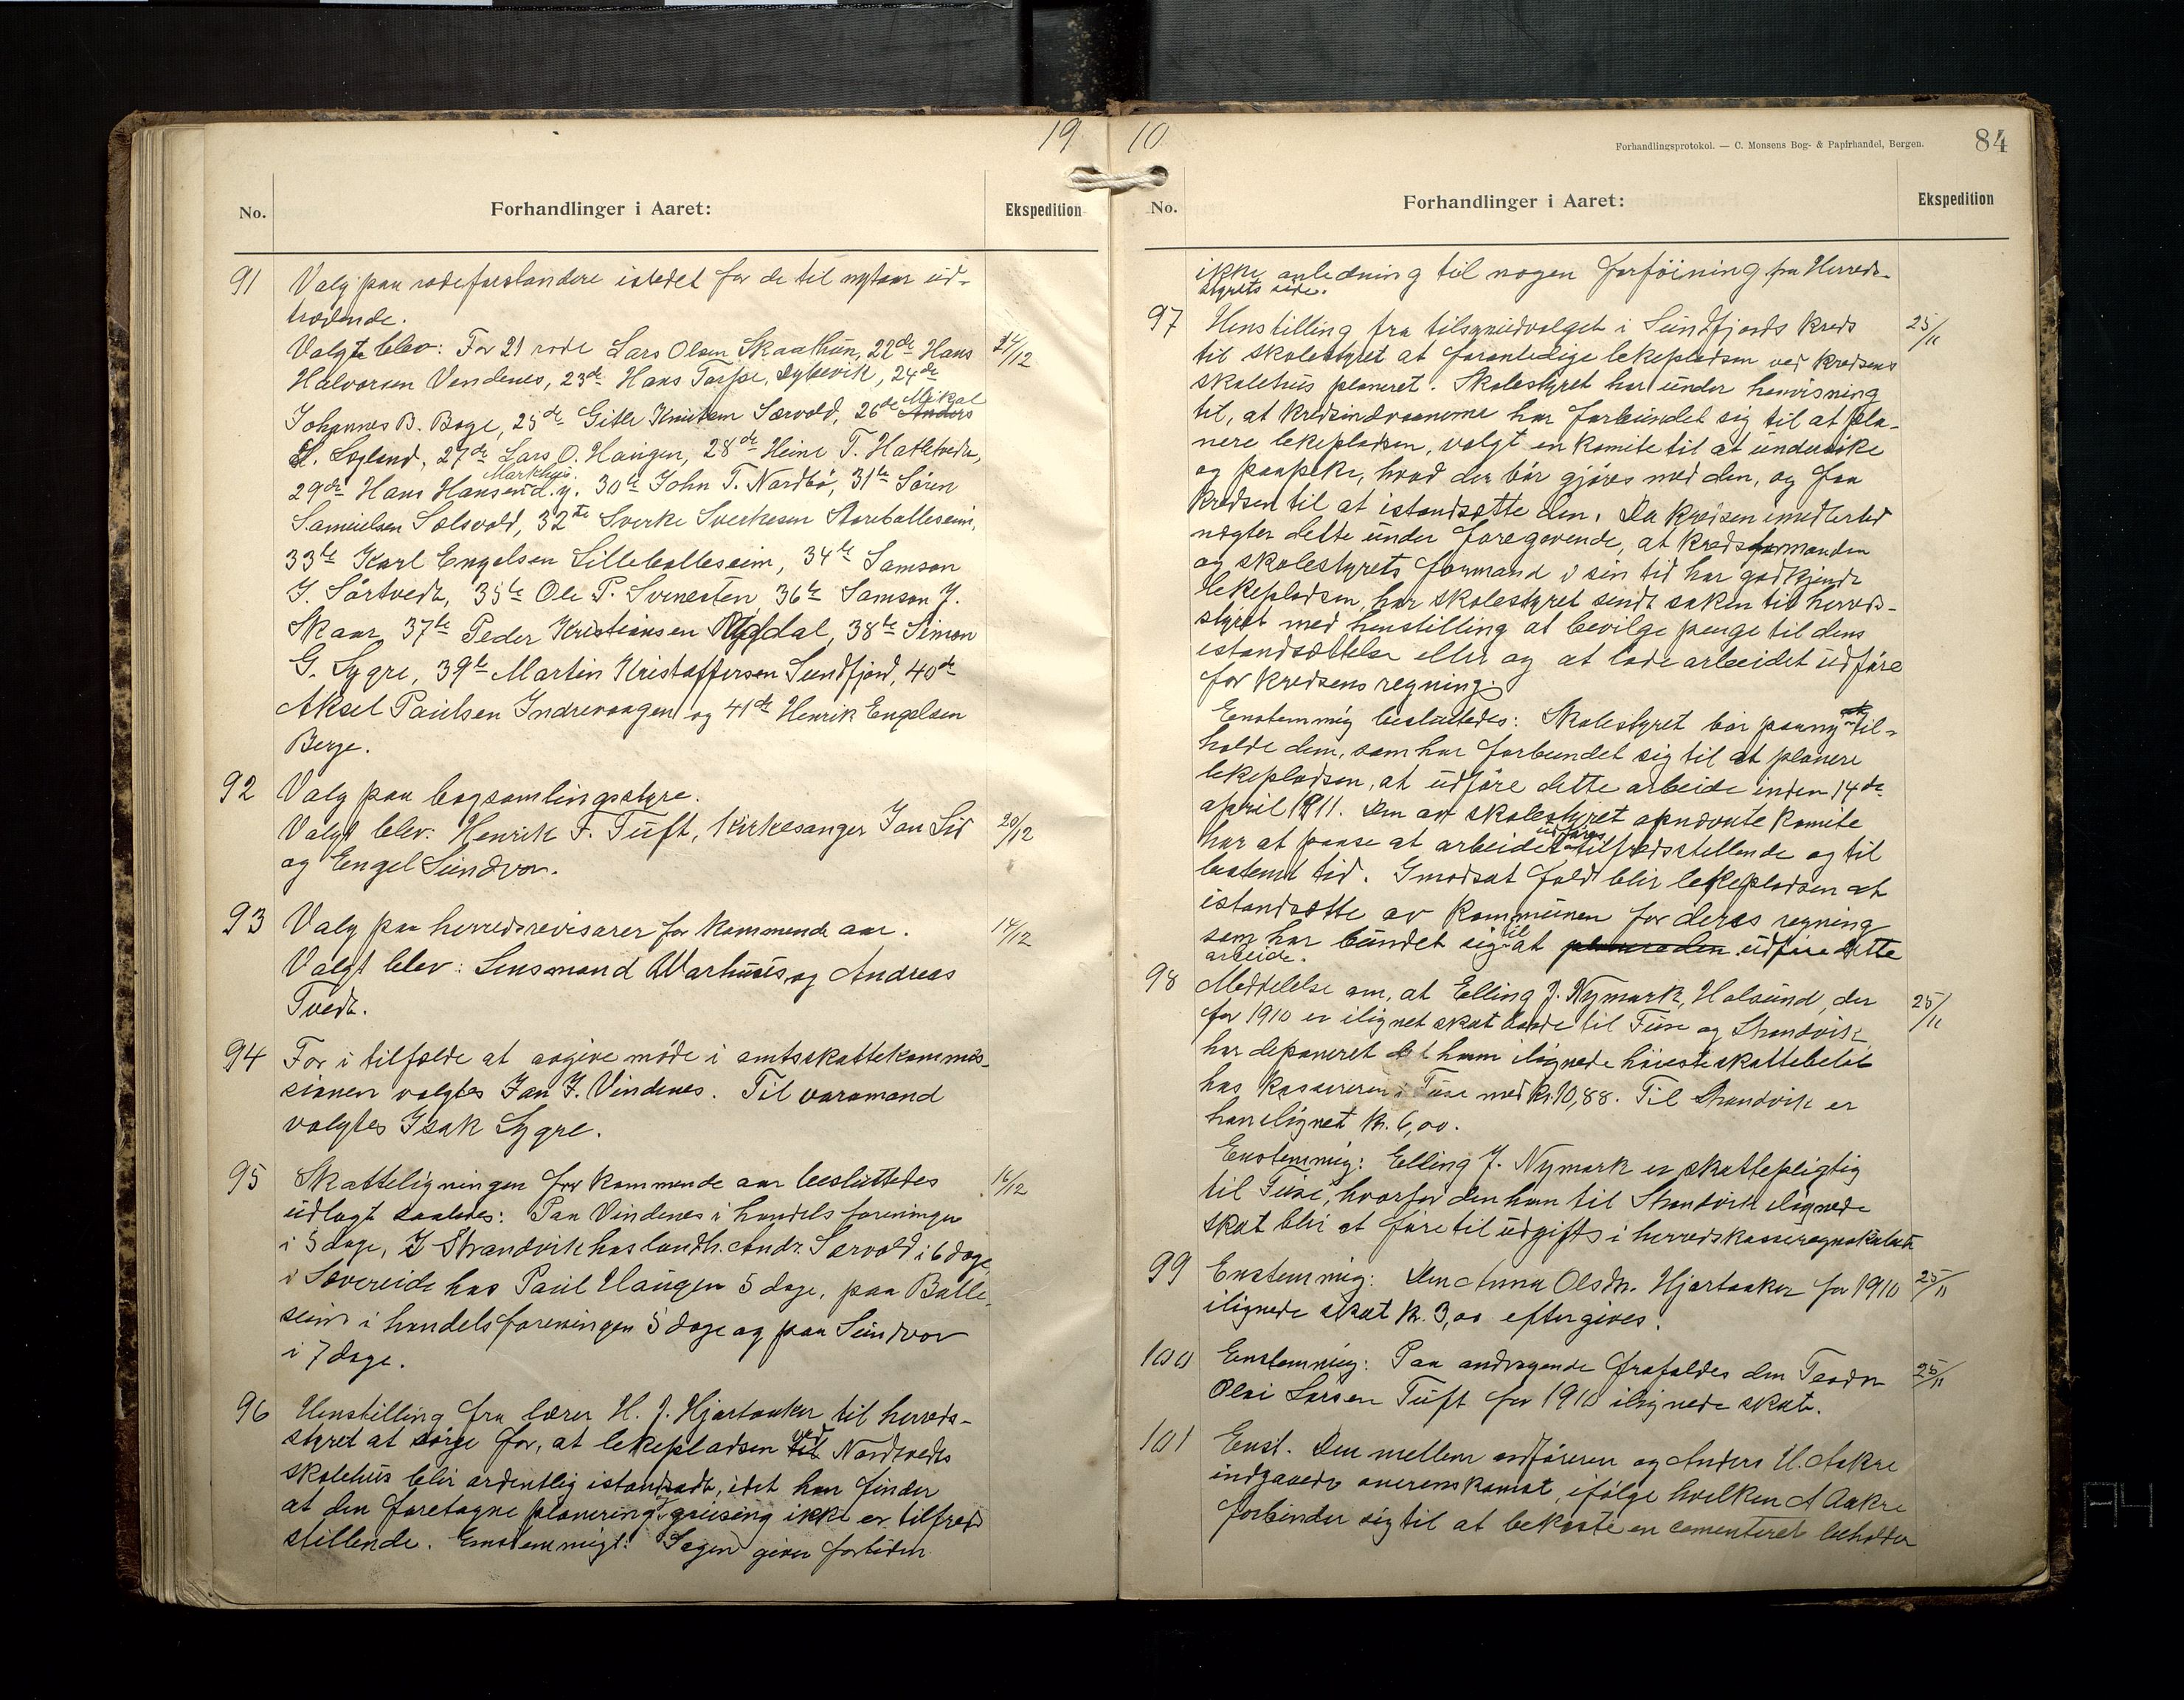 19
No.
Forhandlinger i Aaret:
Ekspedition
91 Valg paa rodeforstandere istedet for de til nytaar ud-
trædende.
Valgte blev: For 21 rode Lars Olsen Skaathun, 22de Hans 24/12
Halvorsen Vendenes, 23de Hans Tarpe, Dybevik, 24de
Johannes B. Boge, 25de Gitle Knutsen Særvold, 26de Anders Mikal
L. Løgland, 27de Lars O. Haugen, 28de Heine T. Hatletvedt,
29de Hans Hansen d.y. Markhus. 30te John T. Nordbö, 31te Sören
Samuelsen Solsvold, 32te Sverke Sverkesen Storeballeseim,
33te Karl Engelsen Lilleballeseim, 34te Samson
J. Sörtvedt, 35te Ole P. Svenesten, 36te Samson J.
Skaar, 37te Peder Kristiansen Rygdal, 38te Simon
G. Lygre, 39te Martin Kristoffersen Sundfjord, 40de
Aksel Paulsen Indrevaagen og 41de Henrik Engelsen
Berge.
92 Valg paa bogsamlingsstyre.
Valgt blev: Henrik F. Tuft, kirkesanger Jan Lid 20/12
og Engel Sundvor.
93 Valg paa herredsrevisorer for kommende aar. 14/12
Valgt blev: Lensmand Warhuus og Andreas
Tvedt.
94 For i tilfælde at avgive möde i amtsskattekommis-
sionen valgtes Jan J. Vindenes. Til varamand
valgtes Isak Lygre.
95 Skatteligningen for kommende aar besluttedes 16/12
udlagt saaledes: Paa Vindenes i handelsforeningen
i 5 dage, I Strandvik hos landh. Andr. Særvold i 6 dage,
i Sævereide hos Paul Haugen 5 dage, paa Balle-
seim i handelsforeningen 5 dage og paa Sundvor
i 7 dage.
96 Henstilling fra lærer H. J. Hjartaaker til herreds-
styret at sörge for, at lekepladsen til ved Nordtvedts
skolehus blir ordentlig istandsadt, idet han finder
at den foretagne planering, grusing ikke er tilfreds
stillende. Enstemmigt: Sagen giver fortiden
10
Forhandlingsprotokol. — C. Monsens Bog- & Papirhandel, Bergen.
84
No.
Forhandlinger i Aaret:
Ekspedition
ikke anledning til nogen forföining fra Herreds-
styrets side.
97 Henstilling fra tilsynsudvalget i Sundfjords kreds 25/11
til skolestyret at foranledige lekepladsen ved kredsens
skolehus planeret. Skolestyret har under henvisning
til, at kredsindvaanerne har forbundet sig til at pla-
nere lekepladsen, valgt en komite til at undersöke
og paapeke, hvad der bör gjöres med den, og faa
kredsen til at istandsætte den. Da kredsen imedlertid
nægter dette under foregivende, at kredsformanden
og skolestyrets formand i sin tid har godkjendt
lekepladsen, har skolestyret sendt saken til herreds-
styret med henstilling at bevilge penge til dens
istandsættelse eller og at lade arbeidet udföre
for kredsens regning.
Enstemmig besluttedes: Skolestyret bör paany til-
holde dem, som har forbundet sig til at planere
lekepladsen, at udföre dette arbeide inden 14de
april 1911. Den av skolestyret opnævnte komite
har at paase at arbeidet udföres tilfredsstillende og til
bestemt tid. I modsat fald blir lekepladsen at
istandsætte av kommunen for deres regning
som har bundet sig til at planere den udföre dette
arbeide.
98 Meddelelse om, at Elling J. Nymark, Holsund, der 25/11
for 1910 er ilignet skat baade til Fuse og Strandvik
har deponeret det ham ilignede höieste skattebelöb
hos kassereren i Fuse med kr. 10,88. Til Strandvik er
han ilignet kr. 6,00.
Enstemmig: Elling J. Nymark er skattepligtig
til Fuse, hvorfor den ham til Strandvik ilignede
skat blir at före til udgift i herredskasseregnskabet
99 Enstemmig: Den Anna Olsdtr. Hjartaaker for 1910 25/11
ilignede skat kr. 3,00 eftergives.
100 Enstemmig: Paa andragende frafaldes den Teodor 25/11
Olai Larsen Tuft for 1910 ilignede skat.
101 Enst. Den mellem ordföreren og Anders H. Aakre
indgaaede overenskomst, ifölge hvilken A Aakre
forbinder sig til at bekoste en cementeret beholder